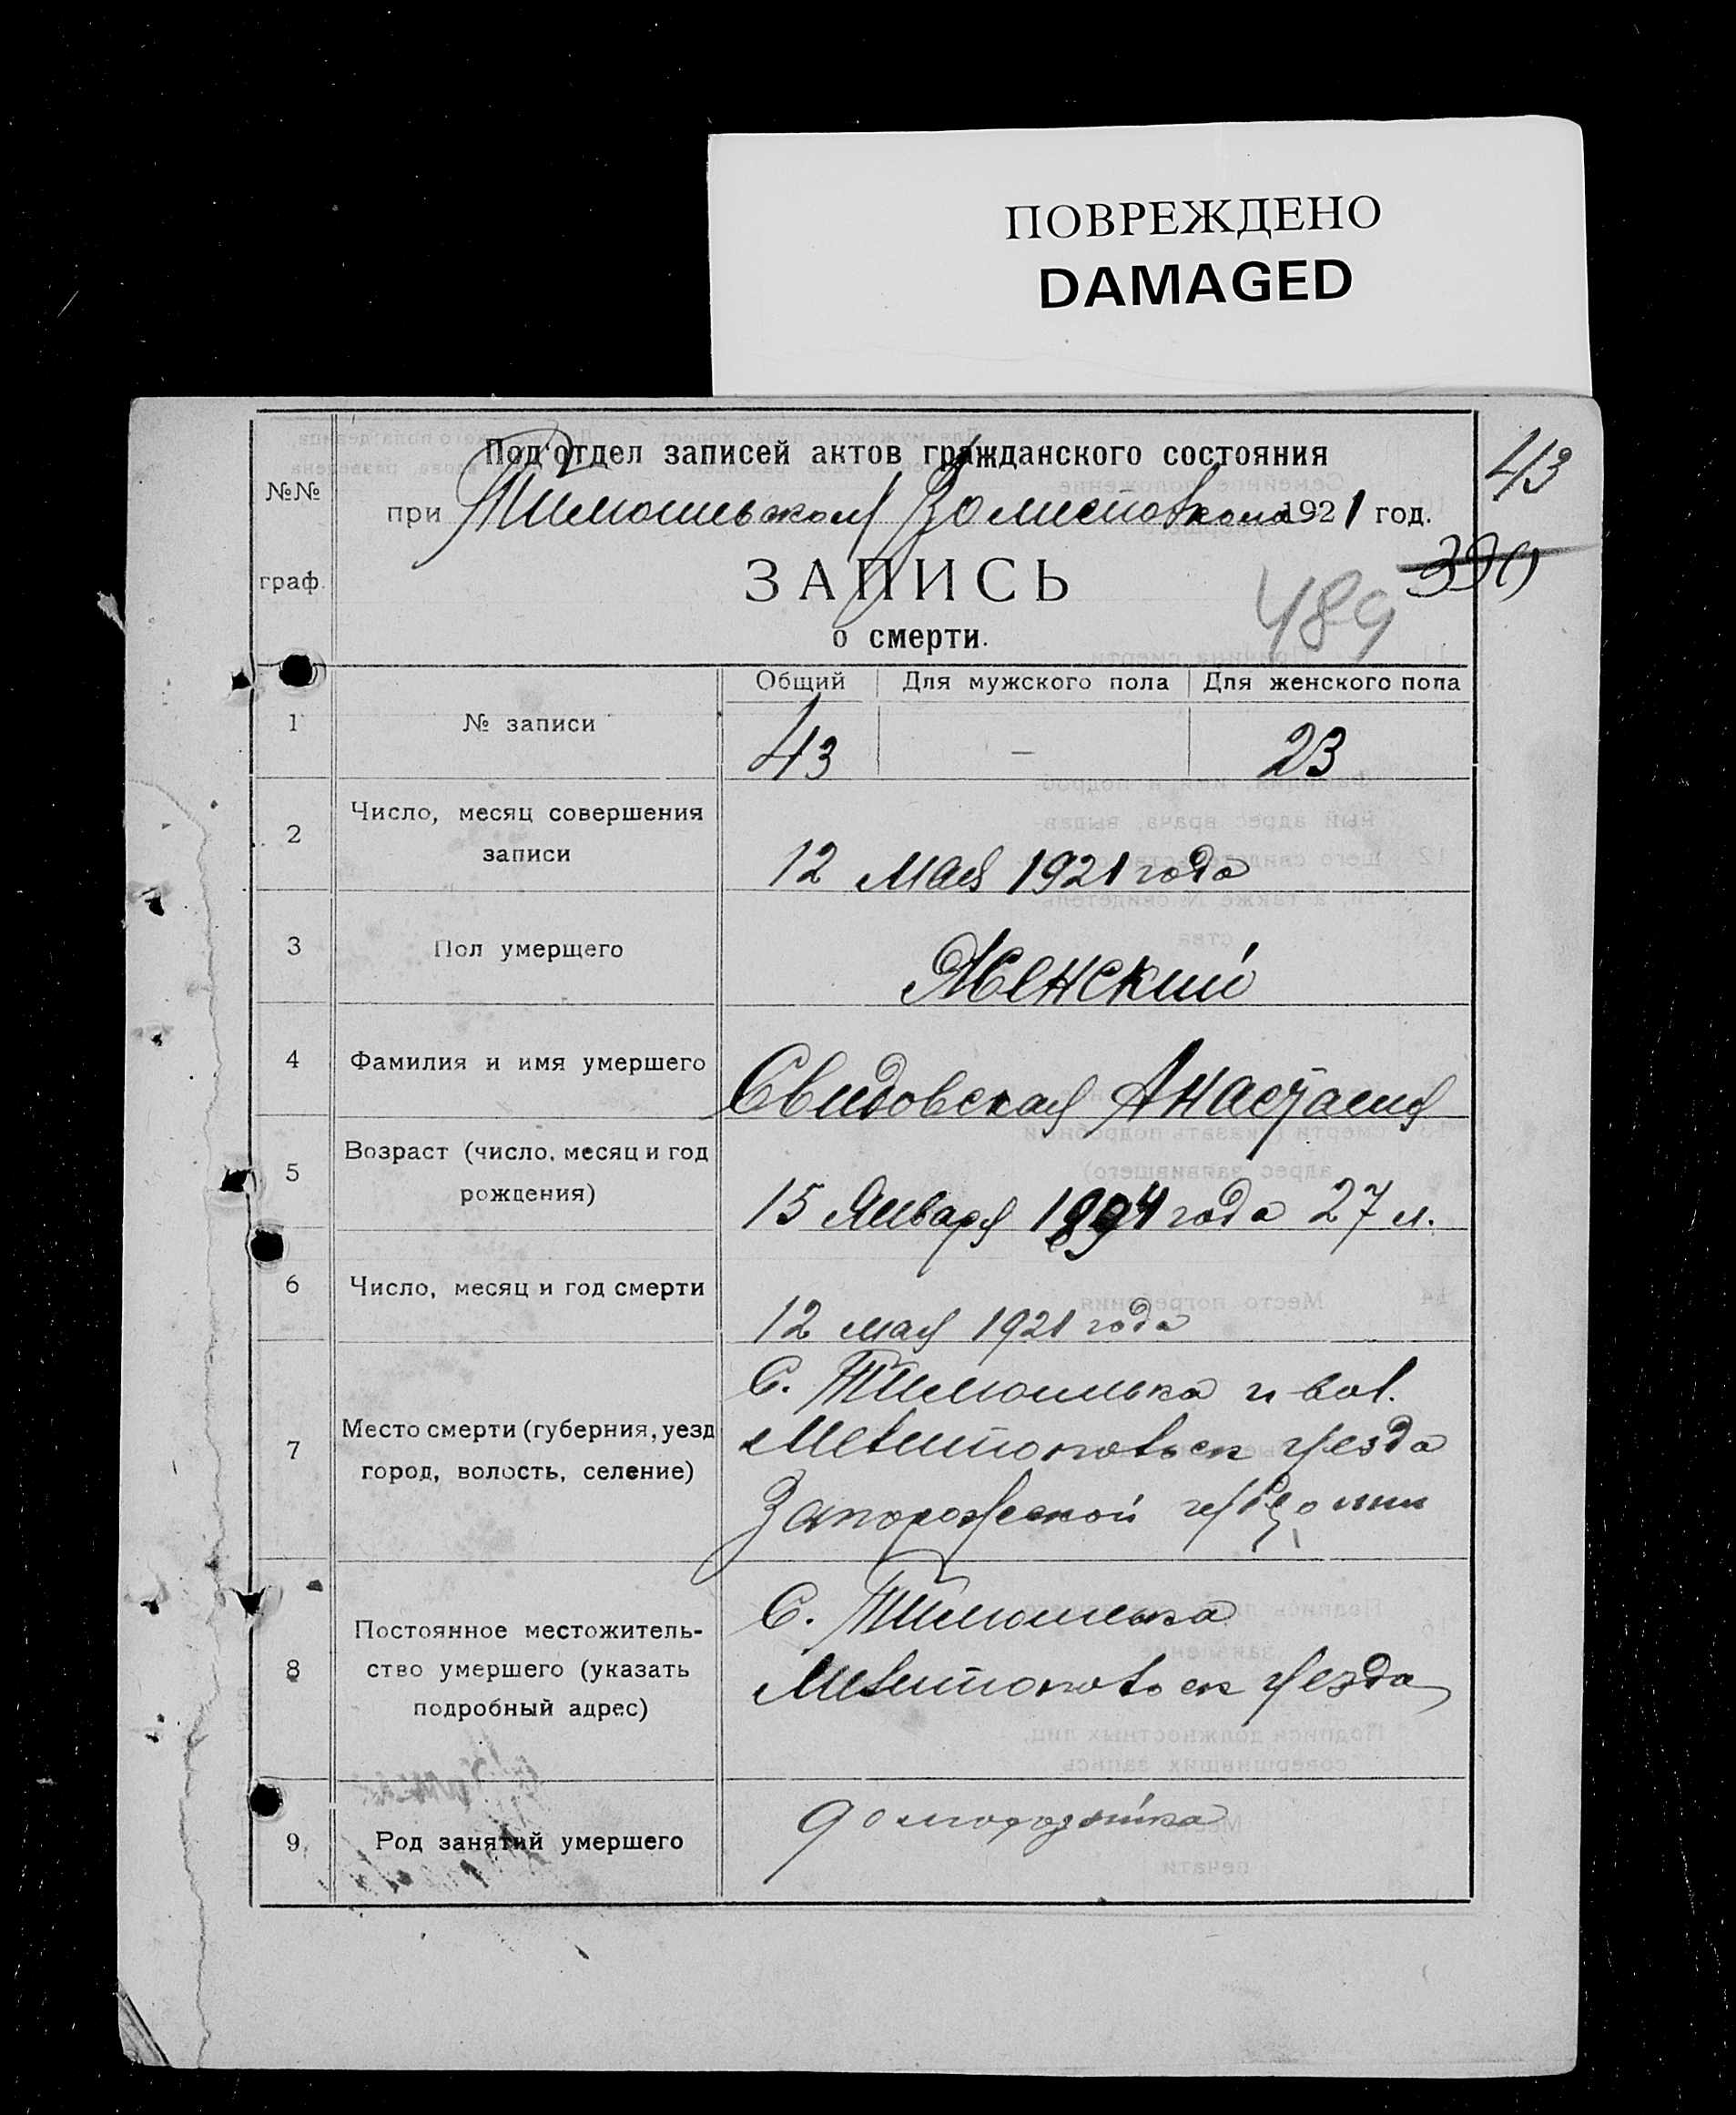 ПОВРЕЖДЕНО
DAMAGED
Подотдел записей актов гражданского состояния
43
№№
при Тимошевском Волисполкоме 1921 год.
390
ЗАПИСЬ
граф.
489
о смерти.
Общий Для мужского пола Для женского пола
1 № записи 43 — 23
2 Число, месяц совершения
записи
12 мая 1921 года
3 Пол умершего Женский
4 Фамилия и имя умершего Свидовская Анастасия
5 Возраст (число, месяц и год
рождения)
15 Января 1894 года 27 л.
6 Число, месяц и год смерти 12 мая 1921 года
7 Место смерти (губерния, уезд
город, волость, селение)
С. Тимошовка и вол.
Мелитопольск уезда
Запорожской губернии
8 Постоянное местожитель-
ство умершего (указать
подробный адрес)
С. Тимошовка
Мелитопольск уезда
9 Род занятий умершего